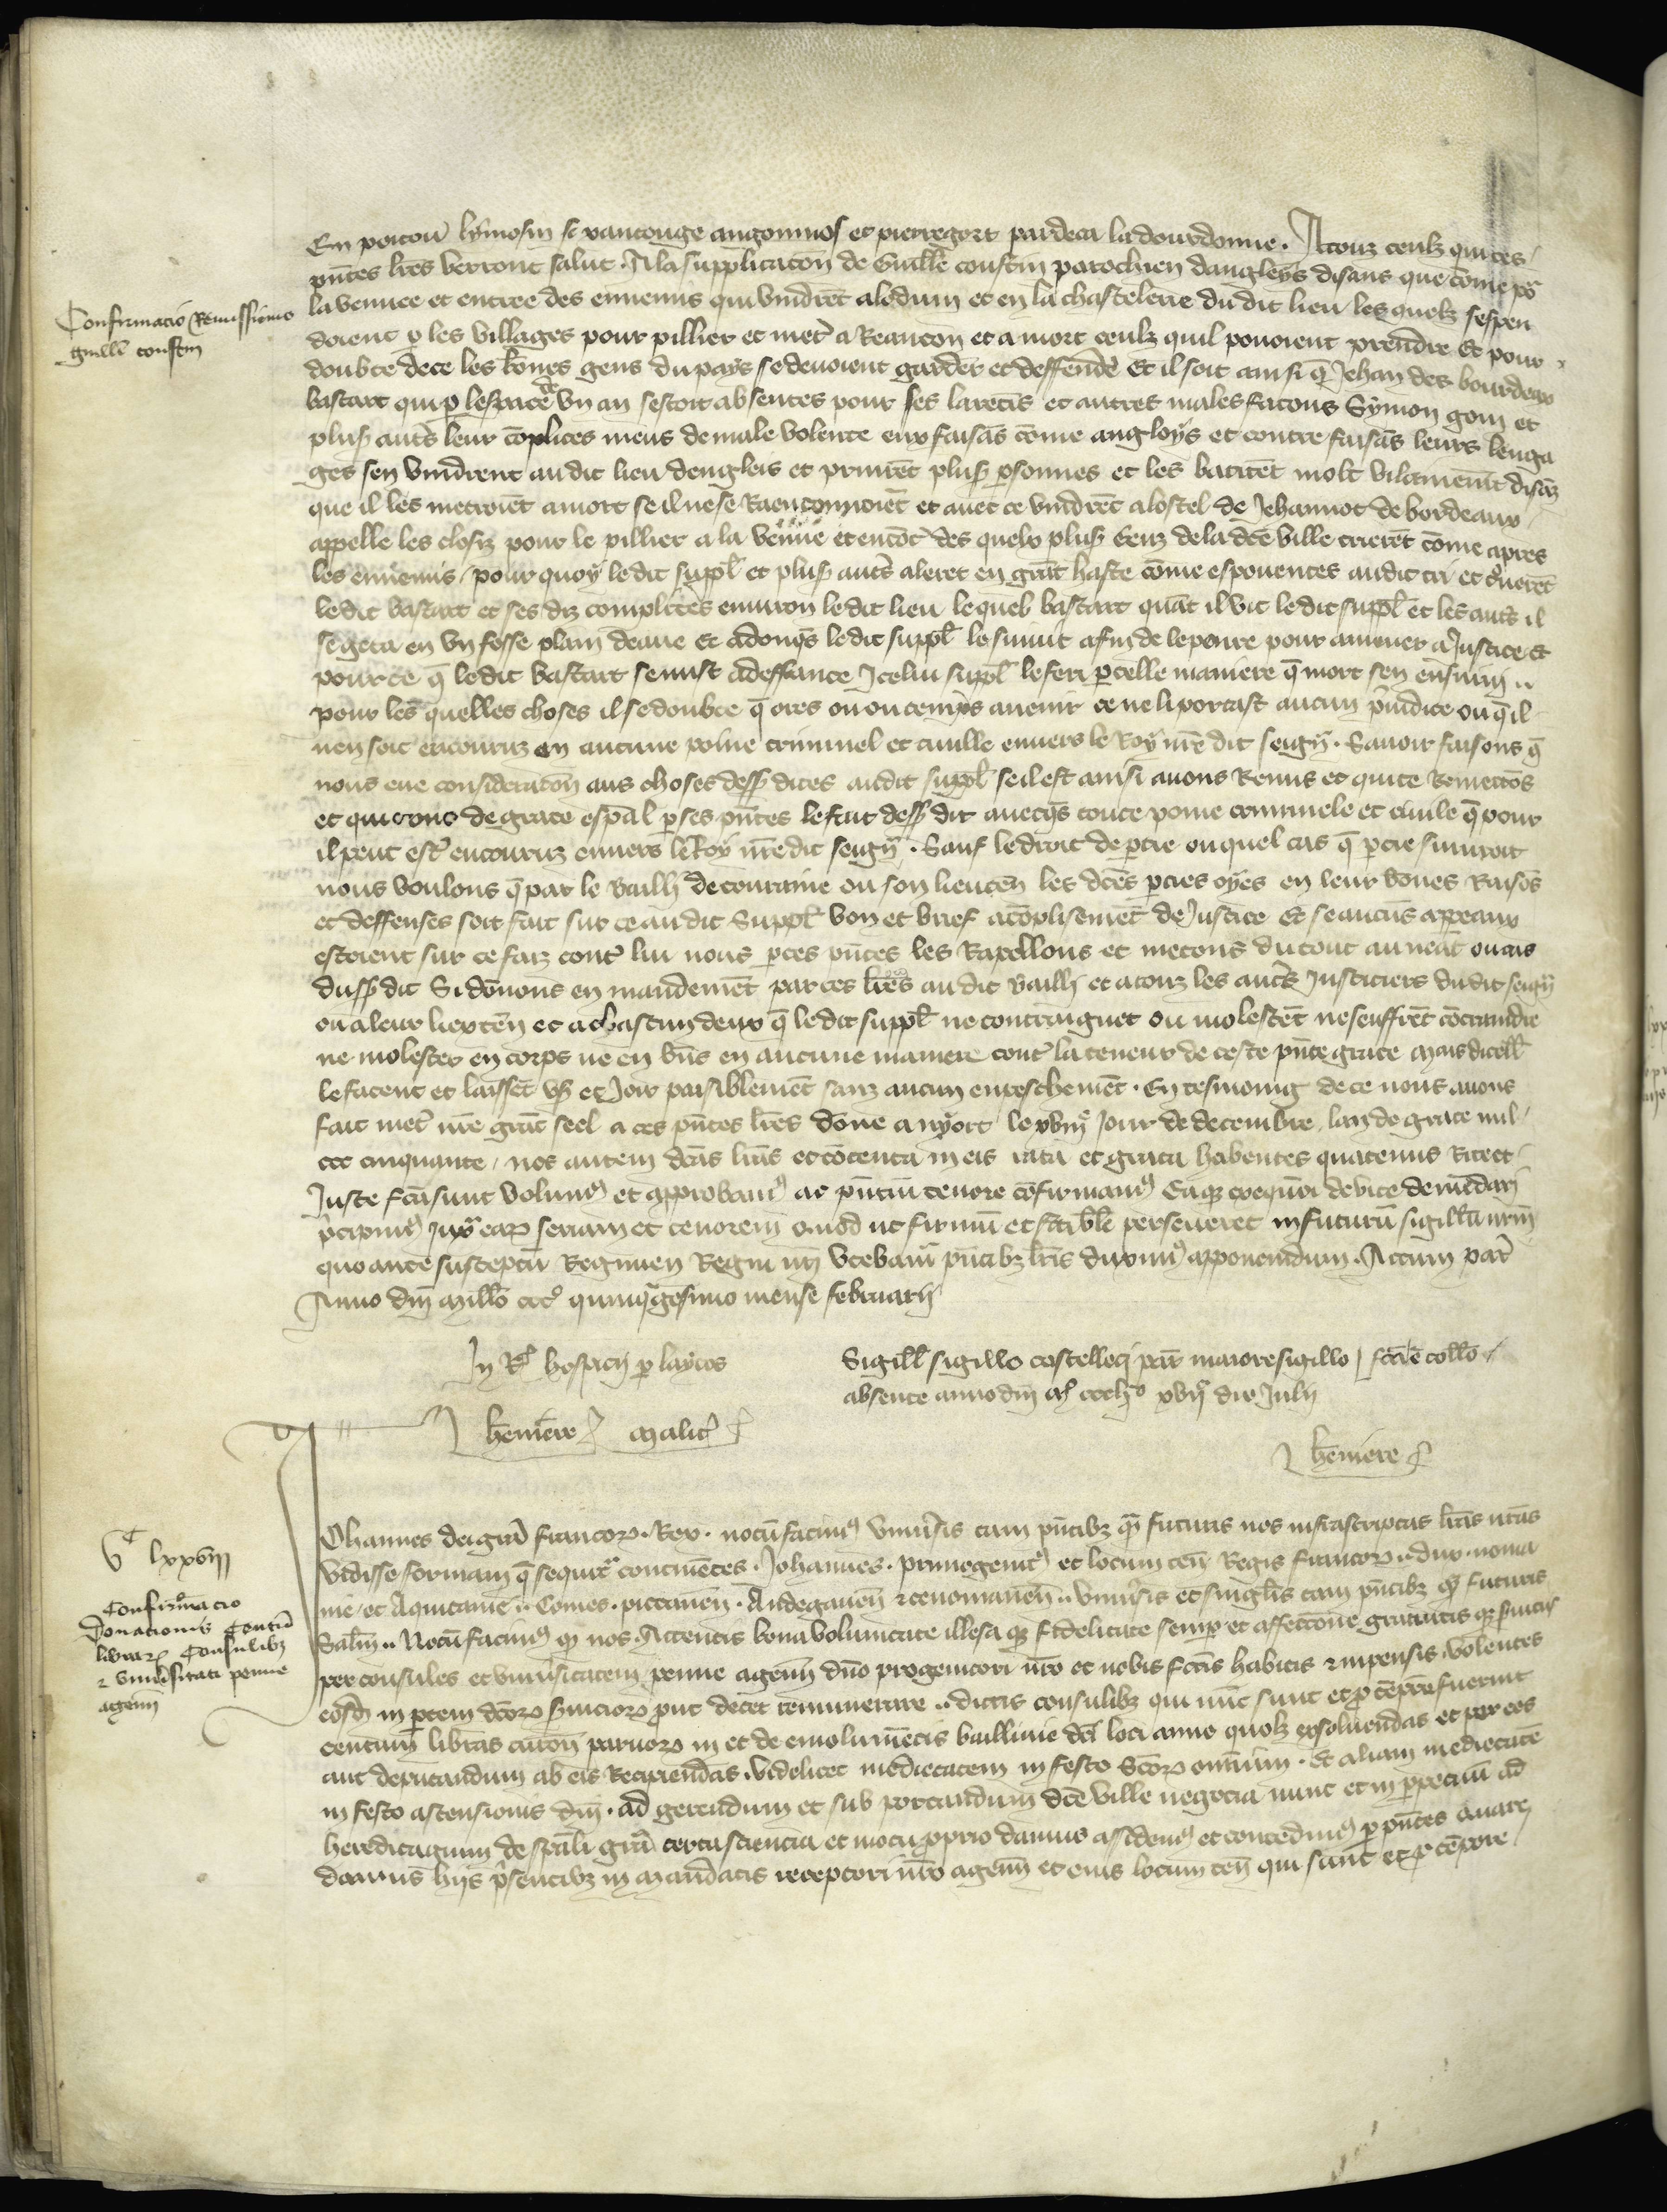 En poitou lymosin xantonge angomnois et pierregort pardeca la dourdonne. A touz ceulz qui ces
pntes lres verront salut. A la supplicaton de Guille constin parochien dangleys disans que come por
la venuee et entree des ennemis qui vindret a lodum et en la chastelerie du dit lieu les quelz sespen
Confirmacio Remissionis
guille constin
doient p les villages pour pillier et metre a Reancon et a mort ceulz quil pouoient prendre Et pour
doubte de ce les bones gens du pays se deuoient garder et deffendre Et il soit ainsi q Jehan des bourdeaux
bastart qui p lespace de vn an sestoit absentes pour ses larecis et autres males facons Symon goin et
plus autres leur coplices meus de male volente eux faisas come angloys et contre faisas leurs lenga
ges sen vindrent audit lieu dengleis et prinret plus psonnes et les batiret molt vilainemt disaz
que il les metroiet a mort se il ne se Raenconnoiet et auec ce vindret a lostel de Jehannot de bordeaux
appelle les closiz pour le pillier a la venue et encotre des quelx plus genz de la dce ville crieret come apres
les ennemis pour quoy le dit suppl et plus autres aleret en grat haste come espouentes audit cri et trouueret
le dit bastart et ses diz complices enuiron le dit lieu le quel bastart quat il vit le dit suppl et les autres il
se geta en vn fosse plain deaue Et adonqs le dit suppl le suiuit afin de le penre pour amener a Justice Et
pour ce q le dit bastart se mist a deffance Icelui suppl le feri p telle maniere q mort sen ensuiui ..
pour les quelles choses il se doubte q ores ou ou temps auenir ce ne li portast aucun piudice ou q il
nen soit encouruz en aucune poine criminel et ciuille enuers le Roy nre dit seign. Sauoir faisons q
nous eue consideraton aus choses dessus dites audit suppl se il est ainsi auons Remis et quite Remettos
et quittons de grace espal p ses pntes le fait dessus dit auecqs toute poine criminele et ciuile q pour
il peut estre encouruz enuers le Roy nre dit seign. Sauf le droit de ptie ou quel cas q ptie suiuroit
nous voulons q par le bailli de touraine ou son lieuten les dces pties oyes en leur bones Raisos
et deffenses soit fait sur ce audit Suppl bon et brief acoplisement de Justice Et se aucus appeaux
estoient sur ce faiz contre lui nous p ces pntes les Rapellons et metons du tout au neat ou cas
dusus dit Si donons en mandemet par ces lres audit bailli et a touz les autres Justiciers du dit seign
ou a leur lieuten et a chascun deux q le dit suppl ne contraignet ou molestet ne seuffret cotraindre
ne molester en corps ne en bns en aucune maniere contre la teneur de ceste pnte grace Mais dicelle
le facent et laisset vser et Joir paisiblemet sanz aucun enpeschemet. En tesmoing de ce nous auons
fait metre nre grat seel a ces pntes lres done a nyort le xviije Jour de decembre lan de grace mil
ccc cinquante. nos autem dcas lras et cotenta in eis rata et grata habentes quatenus Rite et
Juste fca sunt volumus et approbamus ac pntiu tenore cofirmamus Eaqz exequcoi debite demadari
pcipimus Juxta earz seriam et tenorem Quod ut firmu et stabile perseueret in futuru sigillu nrm
quo ante susceptu Regimen Regni nri vtebamur pntibz lris duximus apponendum. Actum par
Anno dni Millo ccco quinquagesimo mense februarii
In Reqs hospicii p laycos
Sigill sigillo castelleti par maiore sigillo fca e collo
absente anno dni Mo cccljo xvija die Julii
heniere Malic
heniere
Vc lxxviij
Confirmacio
Donacionis Centu
librarz Consulibz
& vniuersitati penne
agenn
Johannes dei gra francorz Rex. notu facimus vniuersis tam pntibz qm futuris nos infrascriptas lras nras
vidisse formam q sequitr continetes. Johannes. primogenitus et locum ten Regis francorz .. dux norma
nie et Aquitanie .. Comes. pictauen. Andegauen & cenomanen .. vniuersis et singlis tam pntibz qm futuris
Salm .. Notu facimus qz nos. Attentis bona voluntate illesa qz fidelitate semp et affectione gratuitis qz seruiciis
per consules et vniuersitatem penne agenn dno progenitori nro et nobis fctis habitis & inpensis volentes
eosd in ptem dcorz seruiciorz put decet remunerare .. dictis consulibz qui nuc sunt et p tepre fuerint
centum libras turon paruorz in et de emolumetis baillinie dci loci anno quolz exsoluendas et per eos
aut deputandum ab eis Recipiendas. videlicet medietatem in festo Scorz omnium. Et aliam medietate
in festo ascensionis dni. ad gerendum et sub portandum dce ville negocia nunc et in ppetuu ad
hereditagium de spali gra certa sciencia et motu pprio damus assidemus et concedimus p pntes Quare
damus hijs psentibz in Mandatis receptori nro agenn et eius locum ten qui sunt et p tepore